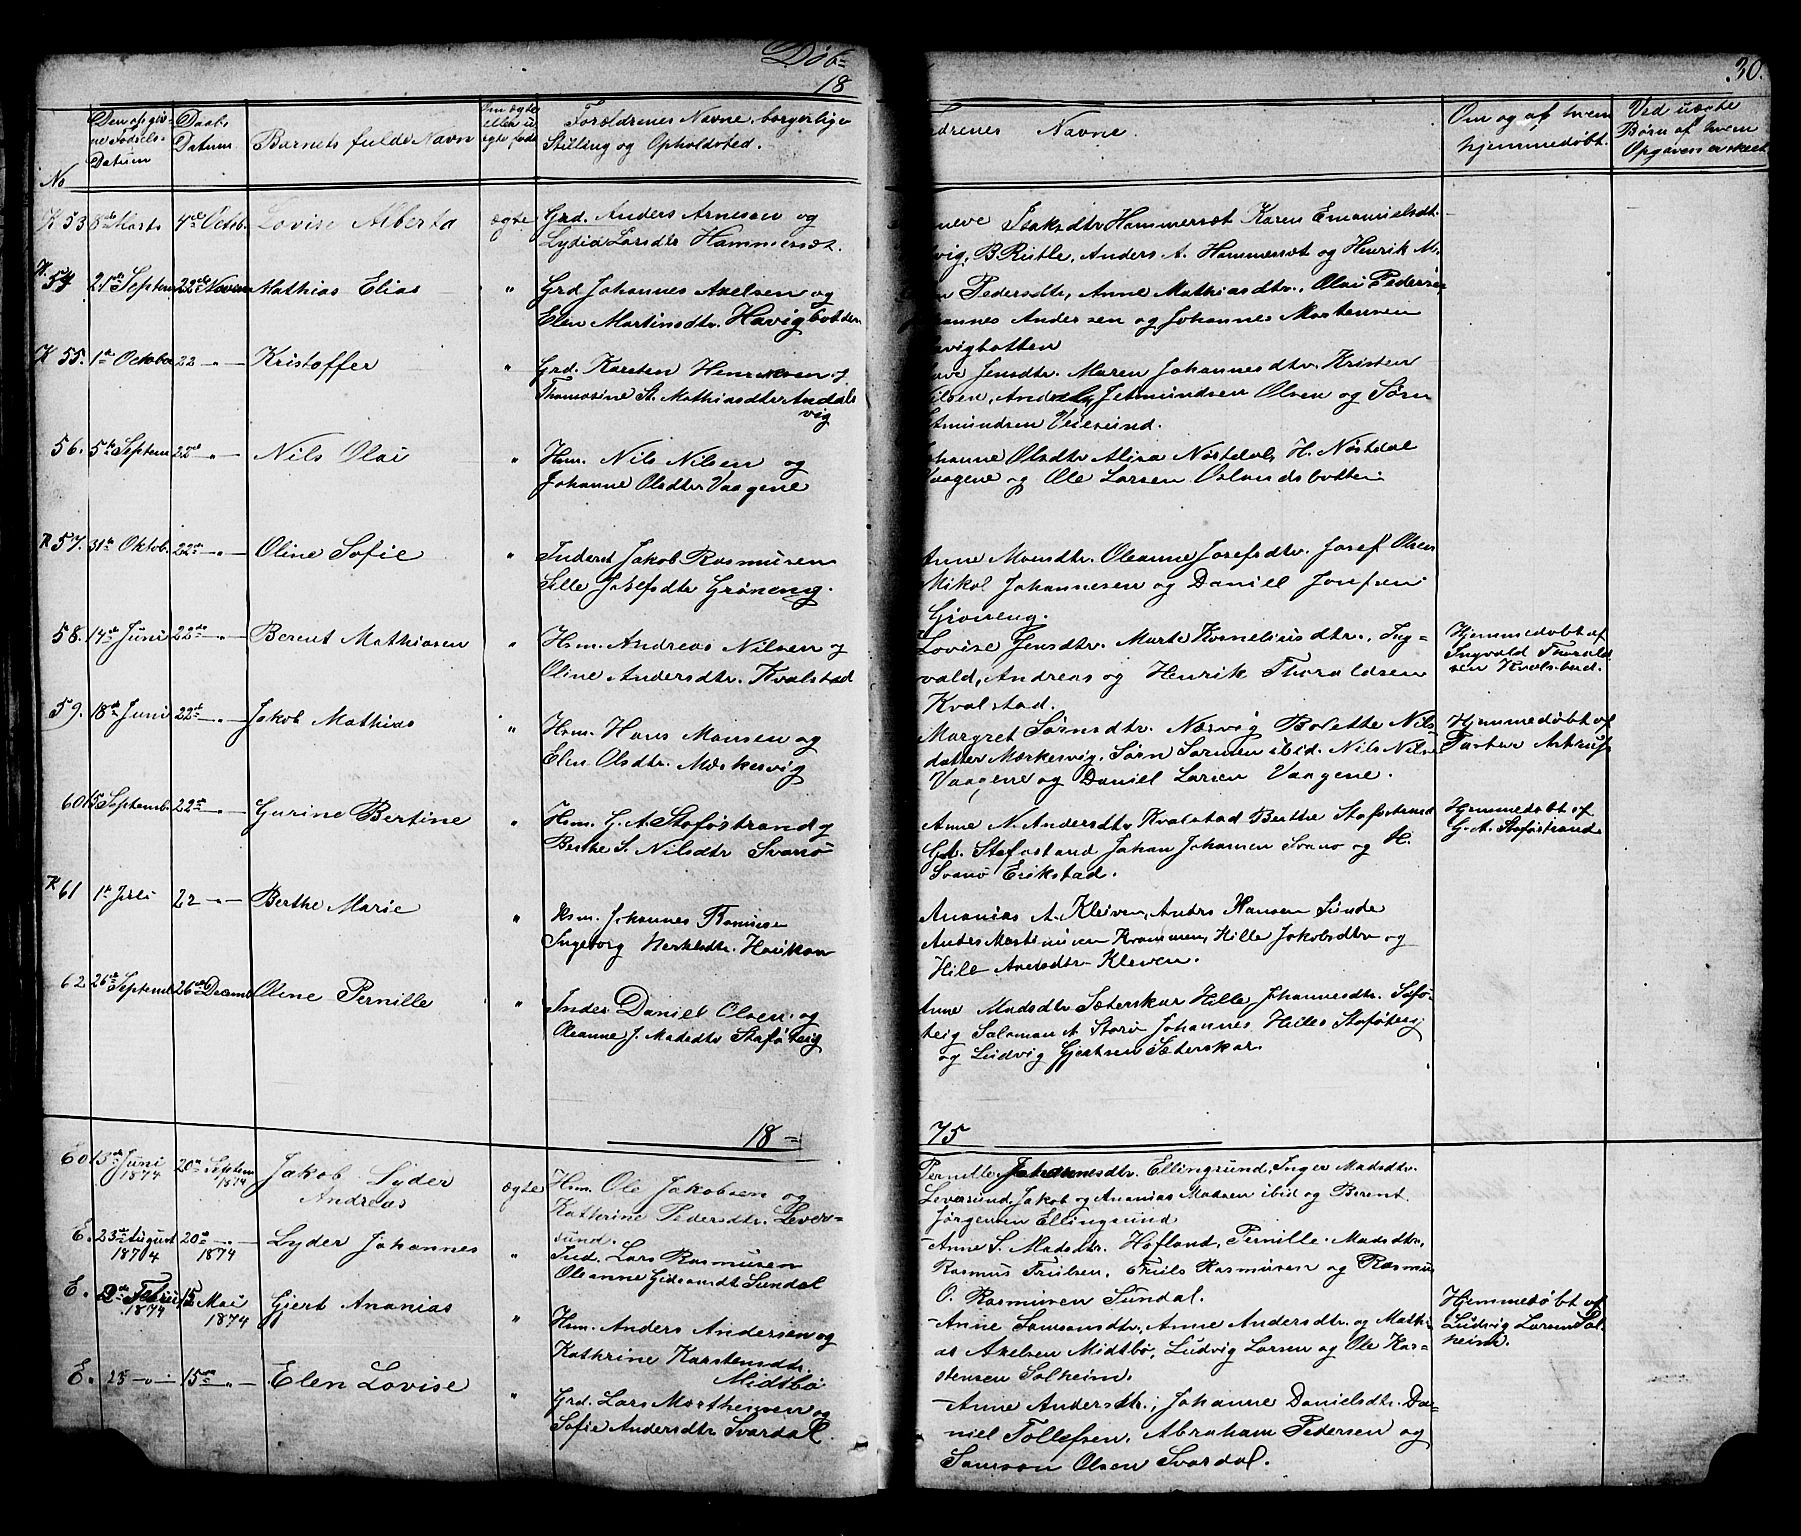 Døb=
18
30.
No
Den opgiv-
ne Fødsels-
Datum
Daabs
Datum.
Barnets fulde Navn
Om ægte
eller u
ægte født
Forældrenes Navne, borgerlige
Stilling og Opholdsted.
drenes Navne.
Om og af hvem
hjemmedøbt.
Ved uægte
Børn af hvem
Opgaven er skeet
K 53 8de Marts 4de Octob. Lovise Alberta ægte Grd. Anders Arnesen og
Lydia Larsdtr Hammersæt.
Isaksdtr Hammersæt Karen Emanuelsdt.
vig, B Rutle, Anders A. Hammersæt og Henrik M.
K. 54 21de Septem 22de Novem Mathias Elias " Grd Johannes Axelsen og
Elen Martinsdtr. Havigbotten
n Pedersdtr, Anne Mathiasdtr., Olai Pedersen
annes Andersen og Johannes Mortensen
vigbotten
K 55. 1ste October 22 -"- Kristoffer " Grd. Karsten Henriksen og
Thomasine St. Mathiasdtr Andals
vig
Jensdtr. Maren Johannesdtr. Kristen
ilsen, Anders Jetmundsen Olsen og Sørn
etmundsen Veiesund.
56. 5te Septem 22de -"- Nils Olai " Hsm. Nils Nilsen og
Johanne Olsdtr Vaagene
ohanne Olsdtr Alisa Nøstdal, H. Nøstdal
Vaagene og Ole Larsen Oslandsbotten
K 57. 31te Oktob. 22de -"- Oline Sofie " Inderst Jakob Rasmusen
Sille Josefsdtr Grøneng.
Anne Monsdtr. Oleanne Josefsdtr. Josef Olsen
Nikol Johannesen og Daniel Jonsen
Grøneng.
58. 14de Juni 22de -"- Berent Mathiasen " Hsm. Andreas Nilsen og
Oline Andersdtr. Kvalstad
Lovise Jensdtr. Marte Korneliusdtr., Ing-
vald, Andreas og Henrik Thoraldsen
Kvalstad.
Hjemmedøbt af
Ingvald Thorald
sen Kvalstad.
59. 18de Juni 22de -"- Jakob Mathias " Hsm. Hans Monsen og
Elen Olsdtr. Mørkesvig
Margret Sørnsdtr. Næsvig Bolette Nils
datter Mørkesvig, Sørn Sørnsen ibid. Nils Nilsen
Vaagene og Daniel Larsen Vaagene.
Hjemmedøbt af
Pastor Astrup
60 15 Septemb. 22de -"- Gurine Bertine " Hsm. G. A. Staføstrand og
Berthe S. Nilsdtr Svanø
Anne N. Andersdtr Kvalstad Berthe Staføstrand
G.A. Staføstrand Johan Johansen Svanø og H.
Svanø Erikstad.
Hjemmedøbt af
G. A. Staføstrand
K 61 1ste Juli 22 -"- Berthe Marie " Hsm. Johannes
Ingeborg
Ananias A. Kleiven, Anders Hansen Sunde
Anders Martinusen Hille Jakobsdtr og
Hille Kleven.
62 26de Septemb 26de Decemb Oline Pernille " Inder Daniel Olsen og
Oleanne J. Madsdtr Staføteig
Anne Madsdtr Sæterskar Hille Johannesdtr. Stafø-
teig Salomon A Johannes Hilles Staføteig
og Ludvig Gjertsen Sæterskar.
18=
75
60 13de Juni
1874 20de Septem
1874 Jakob Lyder
Andreas ægte Hsm. Ole Jakobsen og
Kathrine Pedersdtr. Lever-
sund.
Pernille Johannesdtr. Ellingsund, Inger Madsdtr.
Leversund, Jakob og Ananias Madsen ibid og Berent
Jørgensen Ellingsund
E. 23de August
1874 20de -"-
1874 Lyder Johannes " Ind. Lars Rasmusen
Oleanne Gideonsdt Sundal
-Anne S. Madsdtr. Hofland, Pernille Madsdtr,
Rasmus Trulsen, Truls Rasmusen og Rasmus
O. Rasmusen Sundal.
E. 2de Febru
1874 15 Mai
1874 Gjert Ananias " Hsm. Anders Andersen og
Kathrine Karstensdtr.
Midtbø
-Anne Samsonsdtr, Anne Andersdtr. og Mathi-
as Axelsen Midtbø, Ludvig Larsen og Ole Kar-
stensen Solheim.
Hjemmedøbt af
Ludvig Larsen Sol-
heim.
E. 25 -"- 15de -"- Elen Lovise " Grd. Lars Morthensen og
Sofie Andersdtr Svardal.
-Anne Andersdtr., Johanne Danielsdtr. Da-
niel Tollefsen, Abraham Pedersen og
Samson Olsen Svardal.